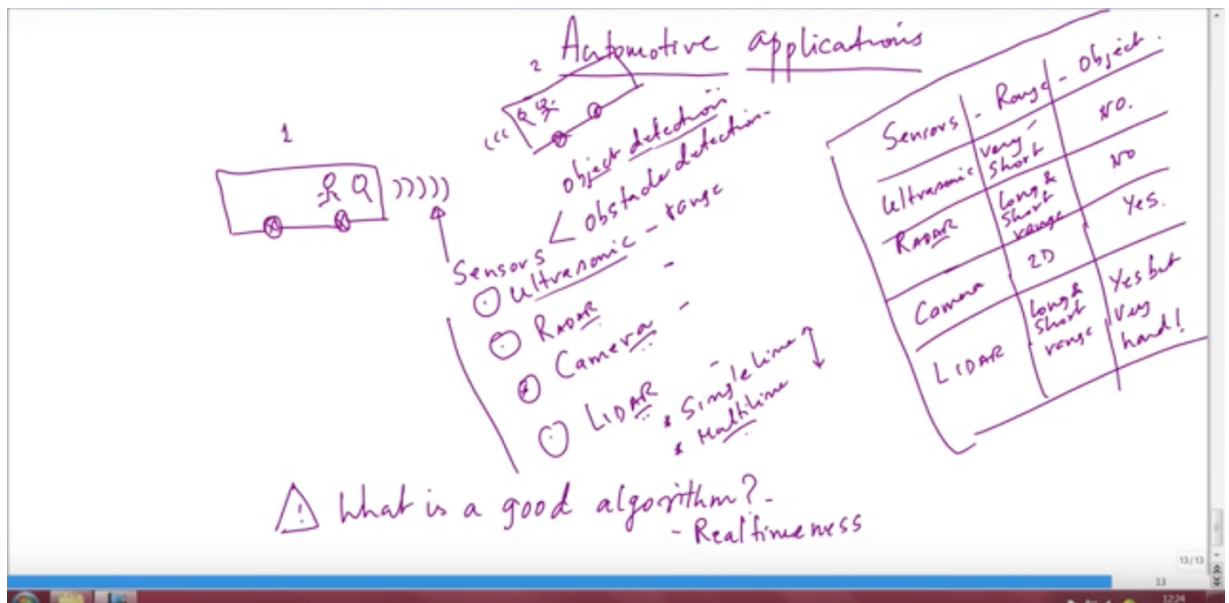 Automotive applications
1
2
object detection
obstacle detection
Sensors
Ultrasonic - range
RADAR
Camera -
LIDAR -
* Singleline
* Multiline
Sensors - Range - Object.
Ultrasonic very short NO.
RADAR Long & short range NO
Camera 2D Yes.
LIDAR Long & short range Yes but very hard!
What is a good algorithm? -
- Realtimeness
13/13
13
12:24